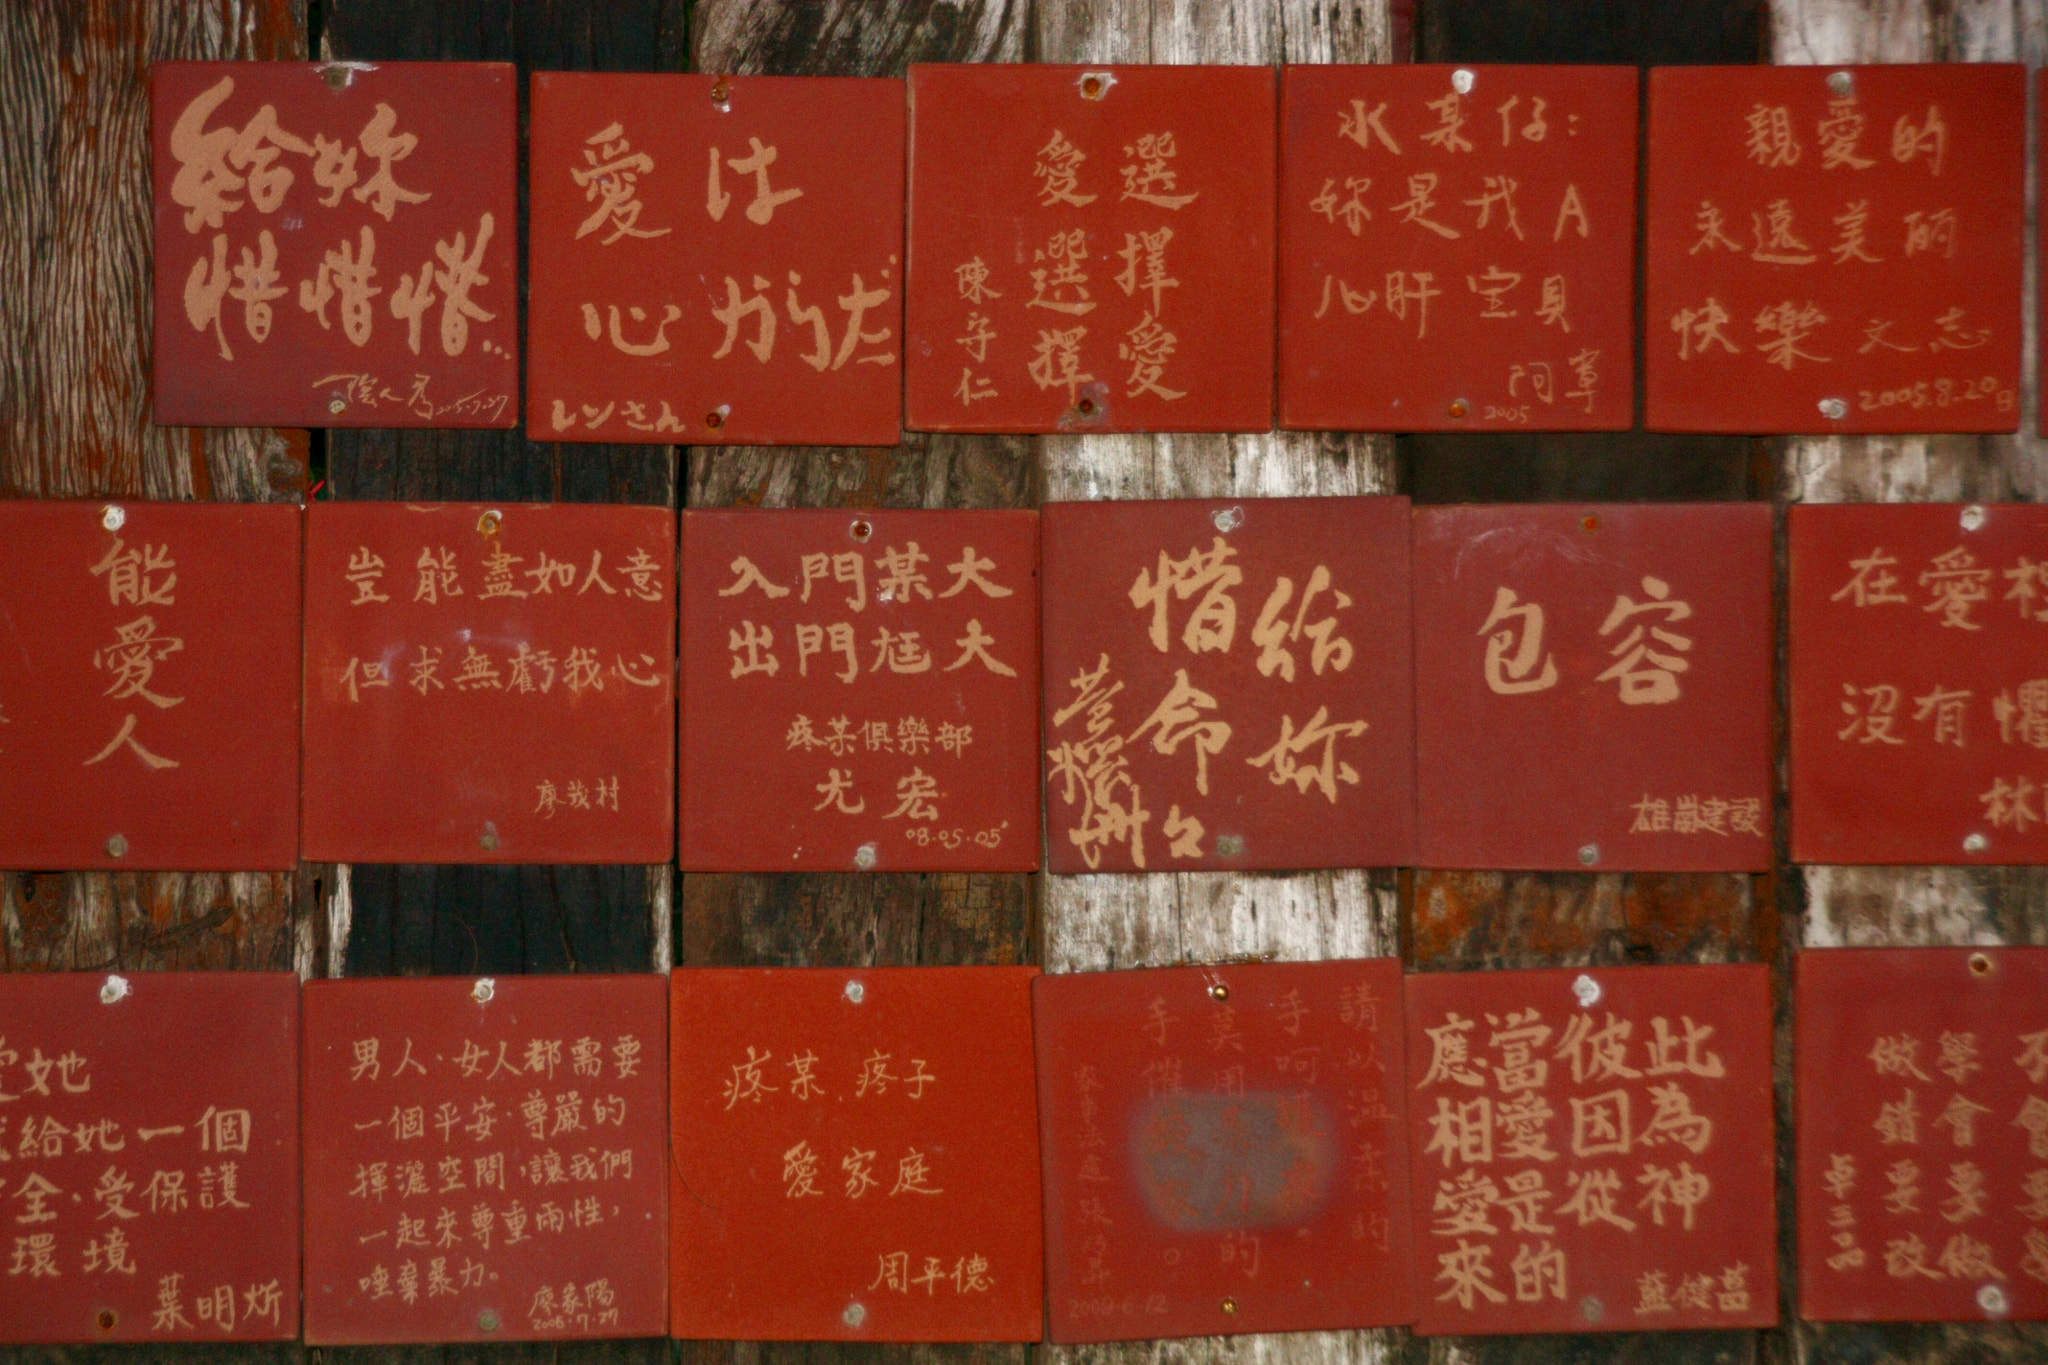 給妳
惜惜惜...
愛は
心から だ
レンさん
選擇愛
愛選擇
陳守仁
水某仔：
妳是我A
心肝宝貝
阿章
2005
親愛的
永遠美麗
快樂 文志
2005.8.20日
能
愛
人
豈能盡如人意
但求無虧我心
入門某大
出門尪大
疼某俱樂部
尤宏
08.05.05
給妳
惜命々
包容
雄崗建設
在愛裡
沒有懼
林
愛她
給她一個
全、受保護
環境
葉明炘
男人、女人都需要
一個平安、尊嚴的
揮灑空間，讓我們
一起來尊重兩性，
唾棄暴力。
廖家陽
2006.7.27
疼某、疼子
愛家庭
周平德
請以溫柔的
手呵
莫用 的
手催
2008.6.12
此為神
彼因從
當愛是的
應相愛來
藍健菖
學會要做
做錯要改
卓三